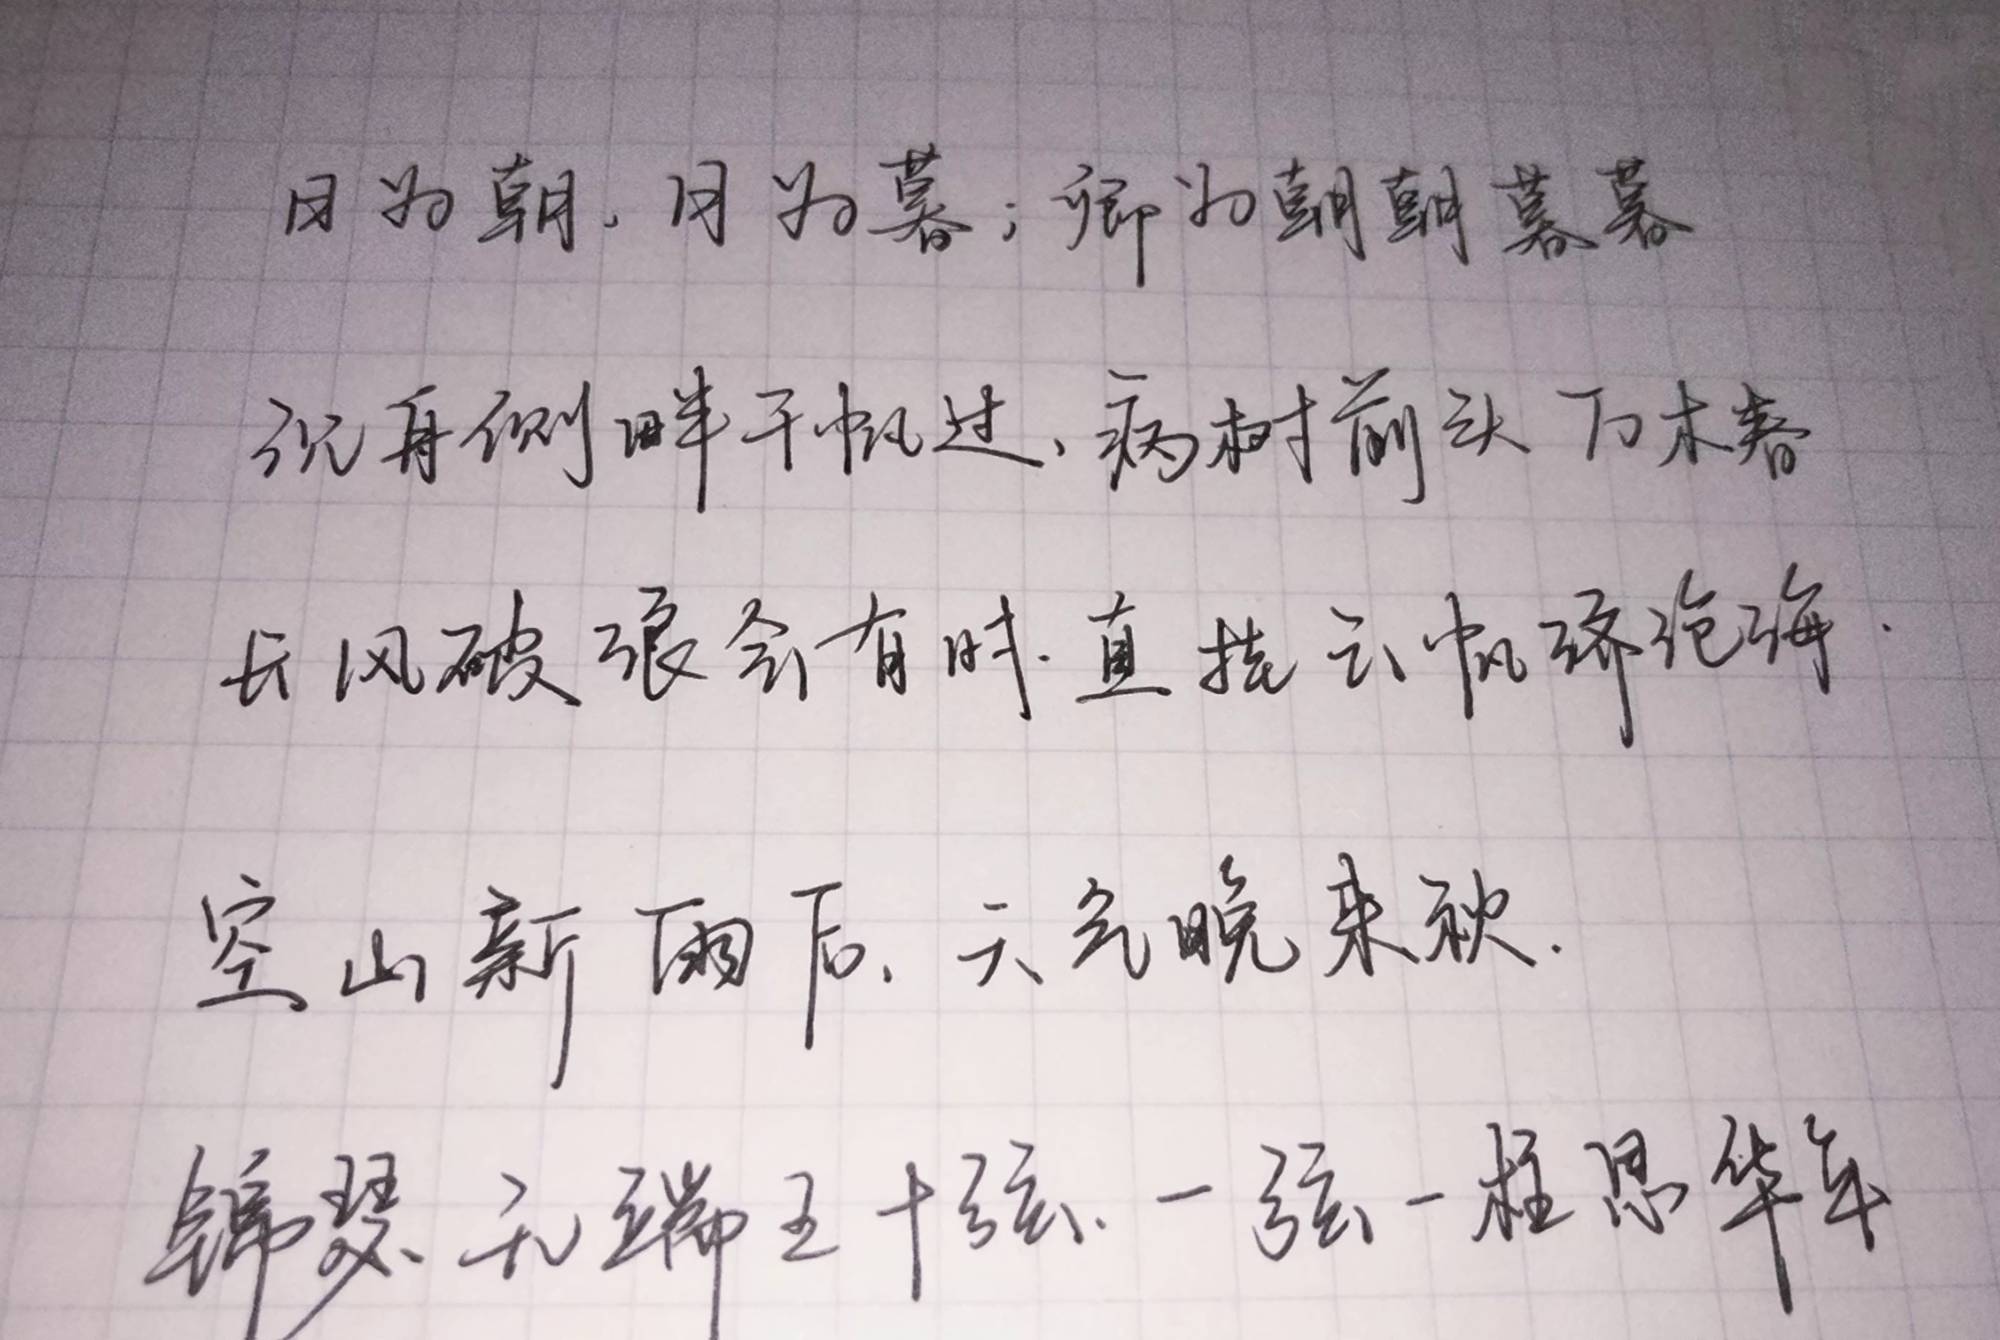 日为朝，月为暮；卿为朝朝暮暮
沉舟侧畔千帆过，病树前头万木春
长风破浪会有时.直挂云帆济沧海.
空山新雨后，天气晚来秋.
锦瑟无端五十弦，一弦一柱思华年